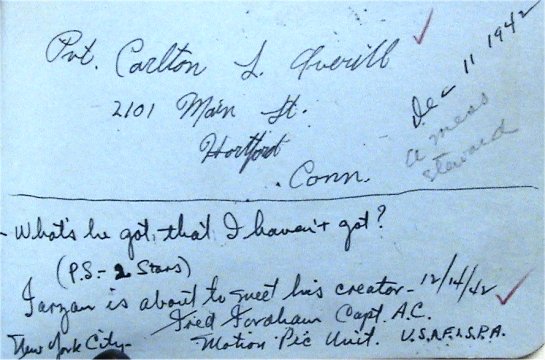 Pvt. Carlton L. Averill
2101 Main St.
Hartford
Conn.
Dec 11 1942
a mess
steward
- What's he got, that I haven't got?
(P.S - 2 Stars)
Tarzan is about to meet his creator - 12/14/42
Fred Fordham Capt. A.C.
New York City - Motion Pic Unit. U.S.A.F.